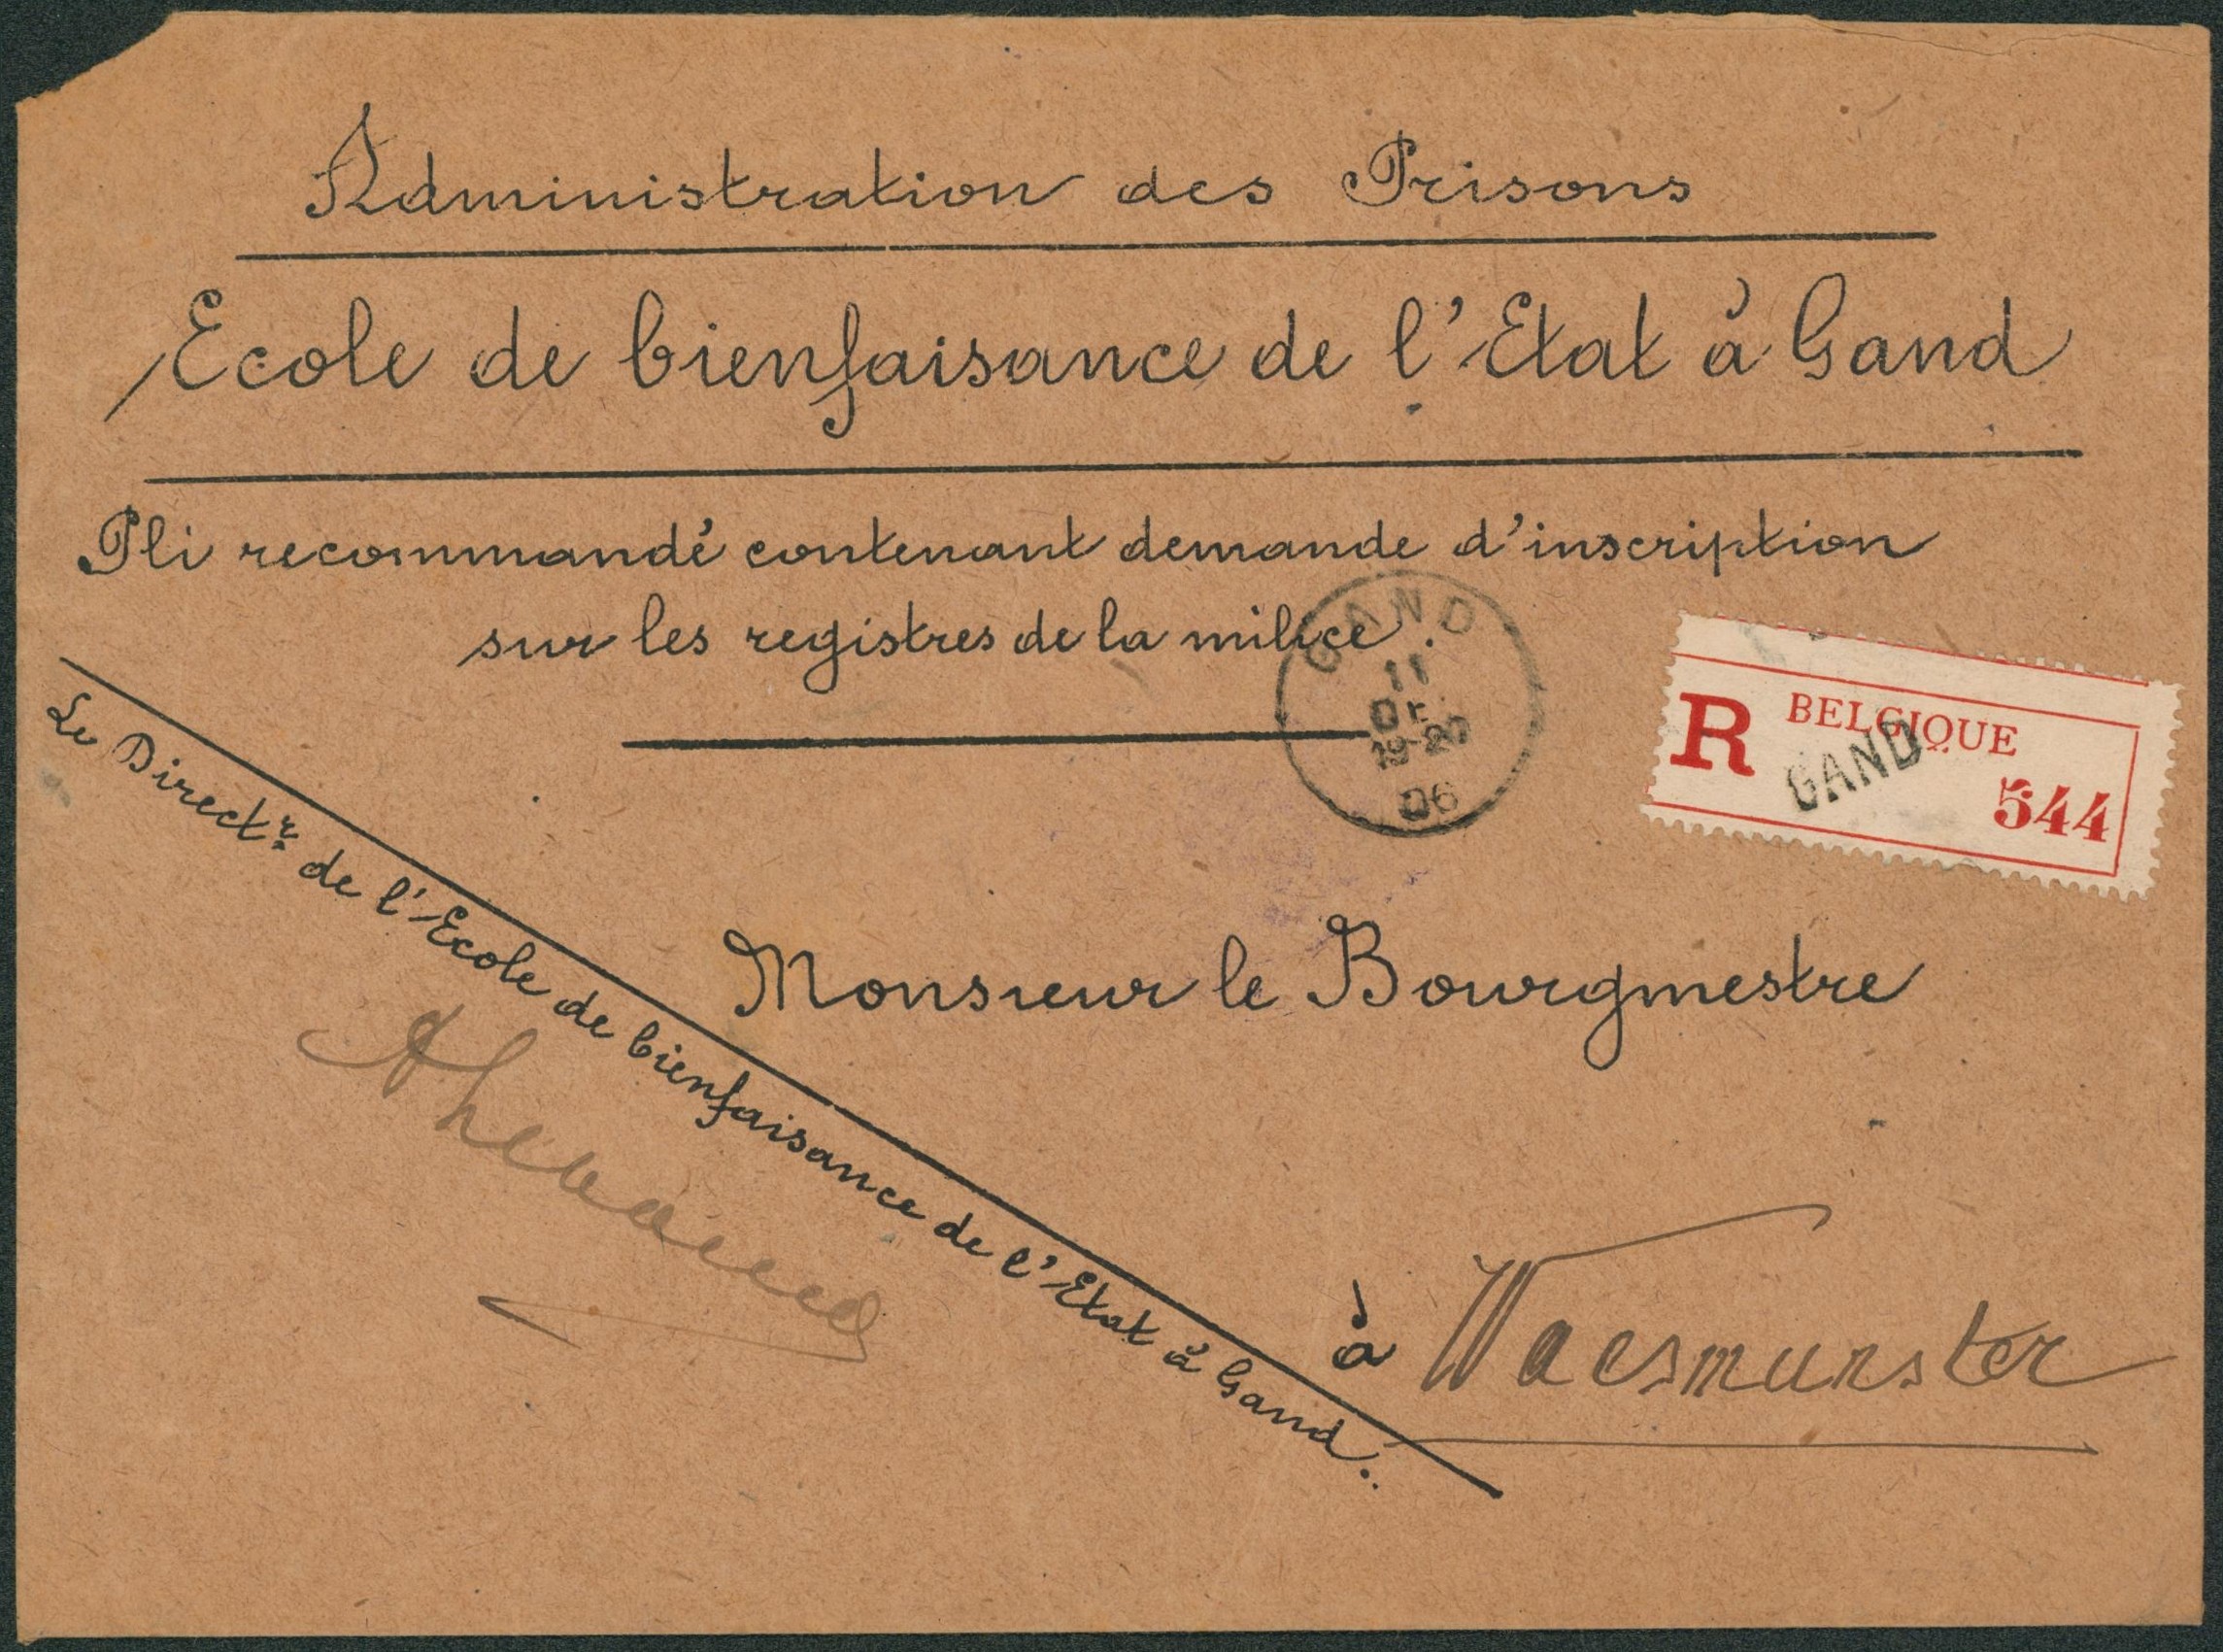 Administration des Prisons
Ecole de bienfaisance de l'Etat à Gand
Pli recommandé contenant demande d'inscription
sur les registres de la milice.
GAND
11
19-20
06
R BELGIQUE
GAND
544
Le Directr de l'Ecole de bienfaisance de l'Etat à Gand.
Monsieur le Bourgmestre
à Waesmunster